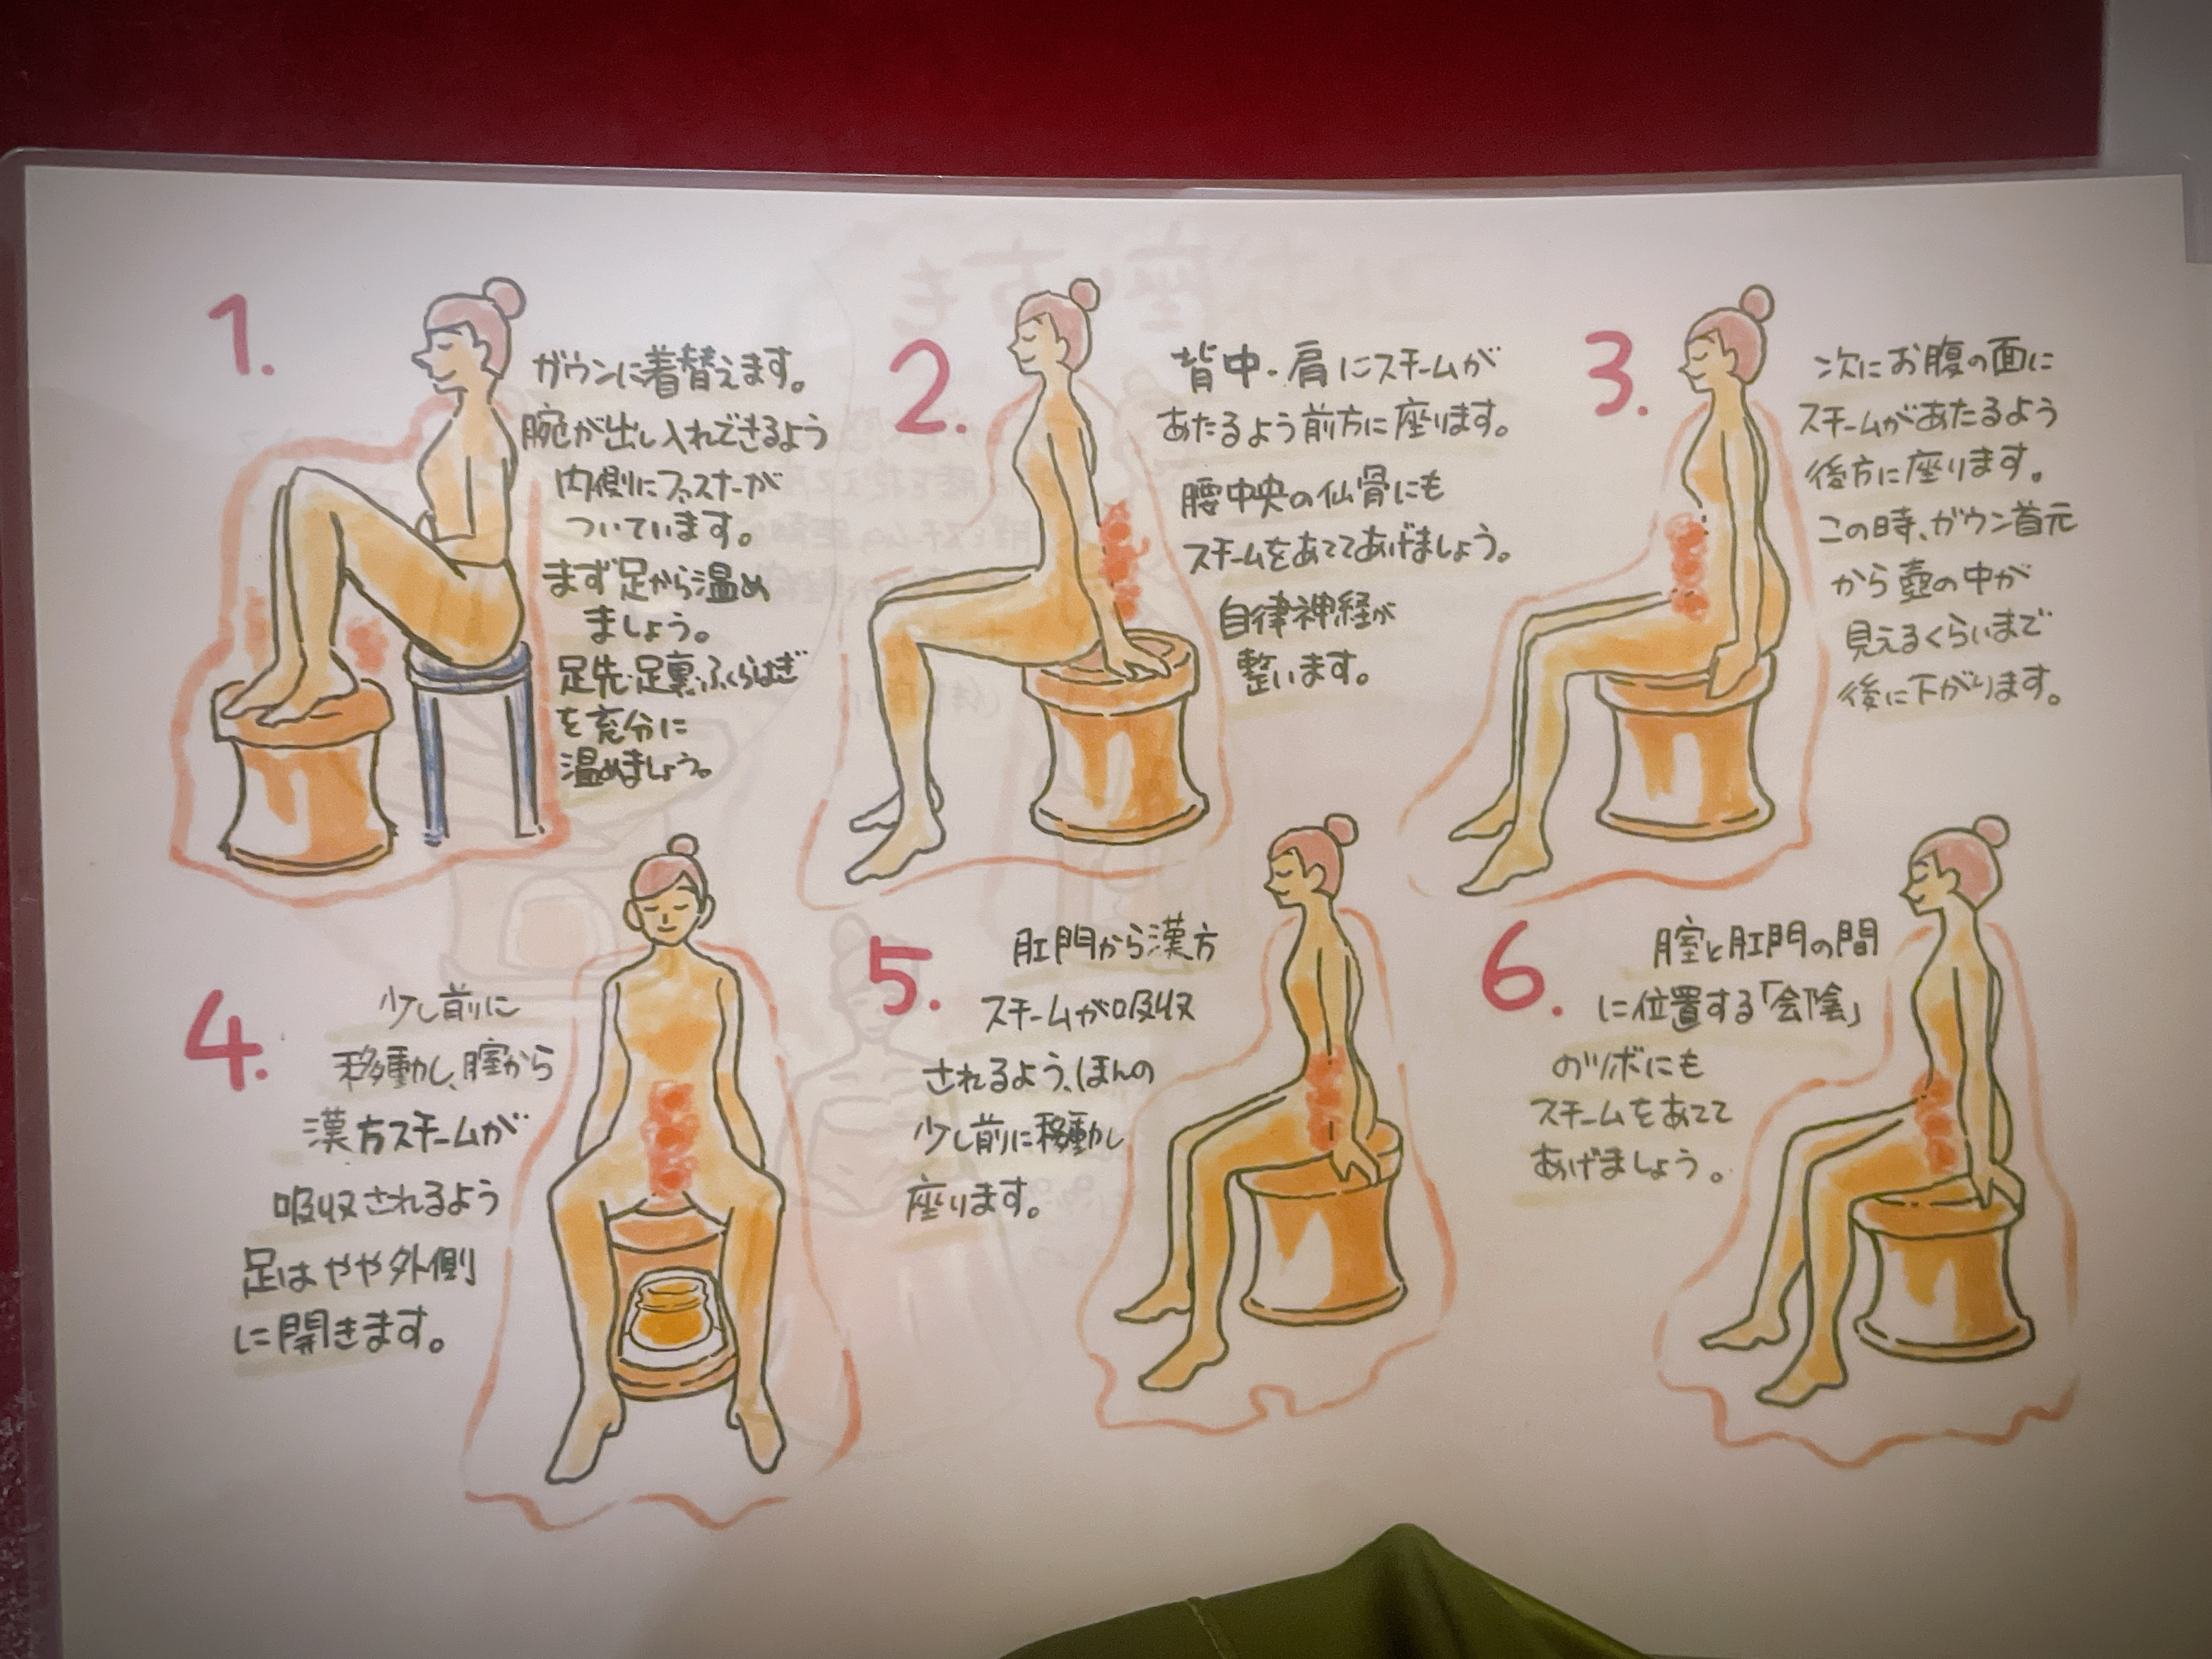 1.
ガウンに着替えます。
腕が出し入れできるよう
内側にファスナーが
ついています。
まず足から温め
ましょう。
足先・足裏・ふくらはぎ
を充分に
温めましょう。
2.
背中・肩にスチームが
あたるよう前方に座ります。
腰中央の仙骨にも
スチームをあててあげましょう。
自律神経が
整います。
3.
次にお腹の面に
スチームがあたるよう
後方に座ります。
この時、ガウン首元
から壺の中が
見えるくらいまで
後に下がります。
4.
少し前に
移動し、膣から
漢方スチームが
吸収されるよう
足はやや外側
に開きます。
5.
肛門から漢方
スチームが吸収
されるよう、ほんの
少し前に移動し
座ります。
6.
膣と肛門の間
に位置する「会陰」
のツボにも
スチームをあてて
あげましょう。